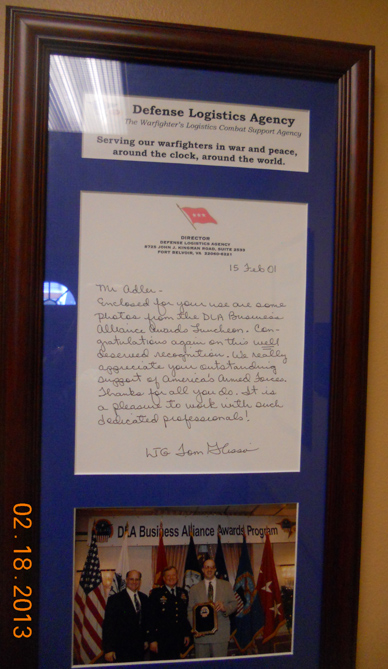 Defense Logistics Agency
The Warfighter's Logistics Combat Support Agency
Serving our warfighters in war and peace,
around the clock, around the world.
DIRECTOR
DEFENSE LOGISTICS AGENCY
8725 JOHN J. KINGMAN ROAD, SUITE 2533
FORT BELVOIR, VA 22060-6221
15 Feb 01
Mr. Adler -
Enclosed for your use are some
photos from the DLA Business
Alliance Awards Luncheon. Con-
gratulations again on this well
deserved recognition. We really
appreciate your outstanding
support of America's Armed Forces.
Thanks for all you do. It is
a pleasure to work with such
dedicated professionals!
DLA Business Alliance Awards Program
02.18.2013